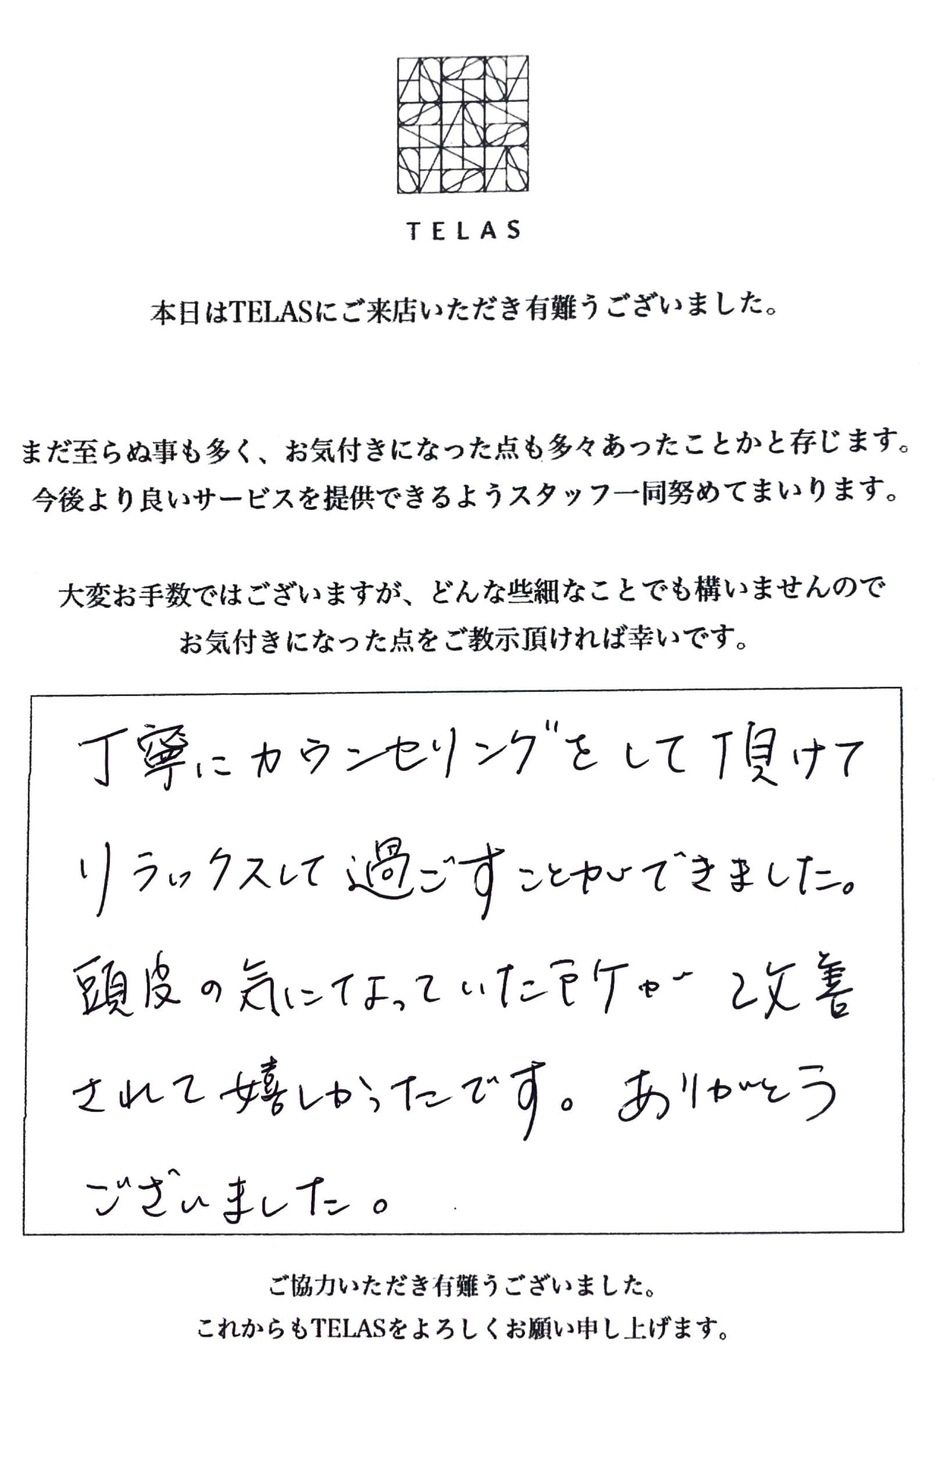 TELAS
本日はTELASにご来店いただき有難うございました。
まだ至らぬ事も多く、お気付きになった点も多々あったことかと存じます。
今後より良いサービスを提供できるようスタッフ一同努めてまいります。
大変お手数ではございますが、どんな些細なことでも構いませんので
お気付きになった点をご教示頂ければ幸いです。
丁寧にカウンセリングをして頂けて
リラックスして過ごすことができました。
頭皮の気になっていた が 改善
されて嬉しかったです。ありがとう
ございました。
ご協力いただき有難うございました。
これからもTELASをよろしくお願い申し上げます。